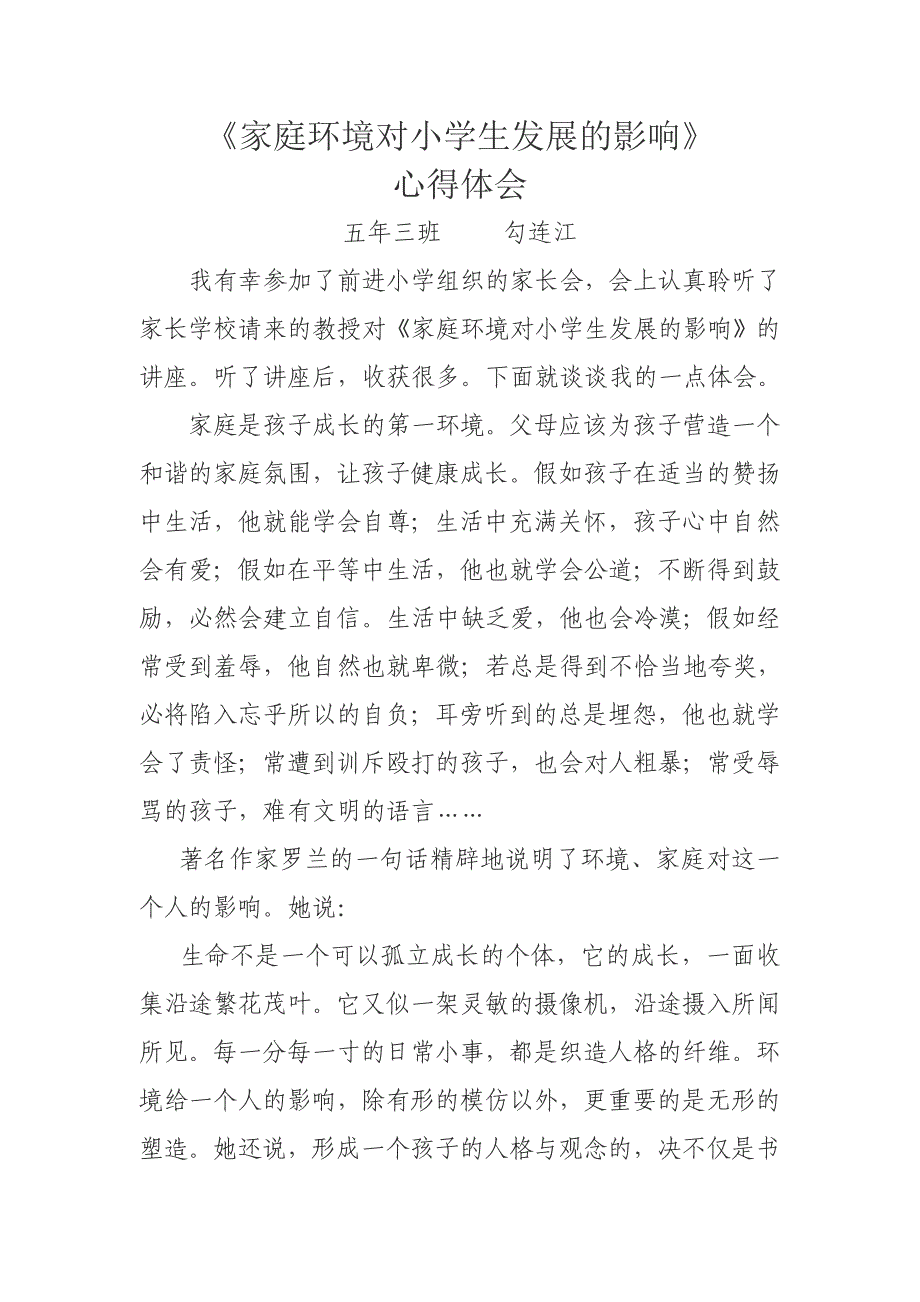 《家庭环境对小学生发展的影响》
心得体会
五年三班 勾连江
我有幸参加了前进小学组织的家长会，会上认真聆听了
家长学校请来的教授对《家庭环境对小学生发展的影响》的
讲座。听了讲座后，收获很多。下面就谈谈我的一点体会。
家庭是孩子成长的第一环境。父母应该为孩子营造一个
和谐的家庭氛围，让孩子健康成长。假如孩子在适当的赞扬
中生活，他就能学会自尊；生活中充满关怀，孩子心中自然
会有爱；假如在平等中生活，他也就学会公道；不断得到鼓
励，必然会建立自信。生活中缺乏爱，他也会冷漠；假如经
常受到羞辱，他自然也就卑微；若总是得到不恰当地夸奖，
必将陷入忘乎所以的自负；耳旁听到的总是埋怨，他也就学
会了责怪；常遭到训斥殴打的孩子，也会对人粗暴；常受辱
骂的孩子，难有文明的语言……
著名作家罗兰的一句话精辟地说明了环境、家庭对这一
个人的影响。她说：
生命不是一个可以孤立成长的个体，它的成长，一面收
集沿途繁花茂叶。它又似一架灵敏的摄像机，沿途摄入所闻
所见。每一分每一寸的日常小事，都是织造人格的纤维。环
境给一个人的影响，除有形的模仿以外，更重要的是无形的
塑造。她还说，形成一个孩子的人格与观念的，决不仅是书